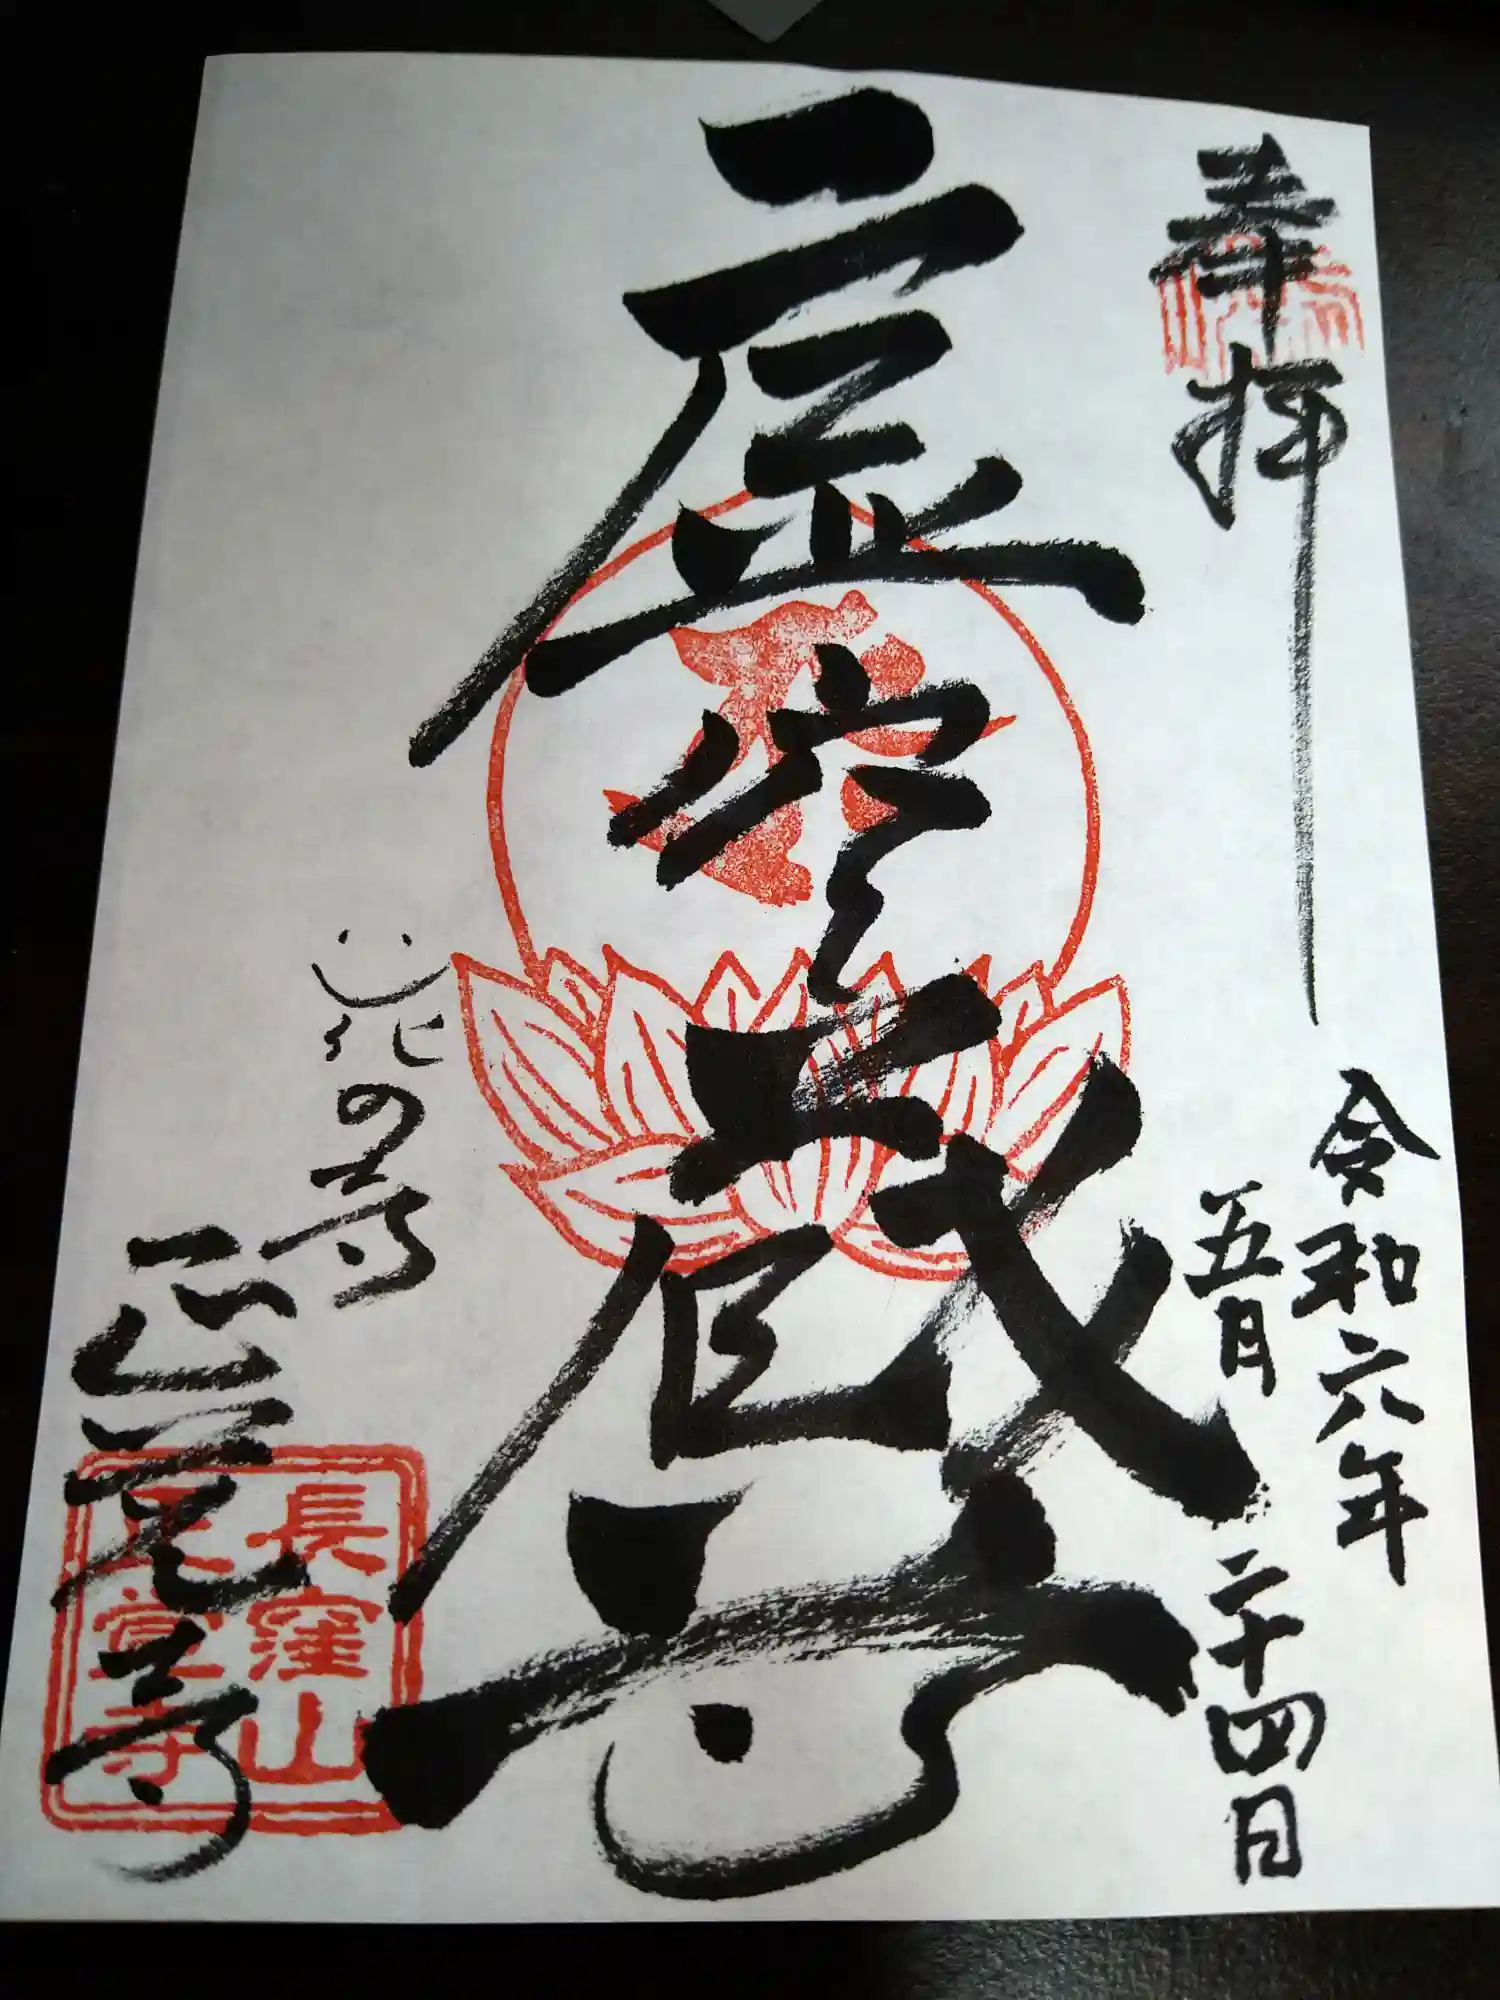 奉拝
令和六年
五月二十四日
虚空蔵尊
心花の寺
正覚寺
長窪山
正覚寺